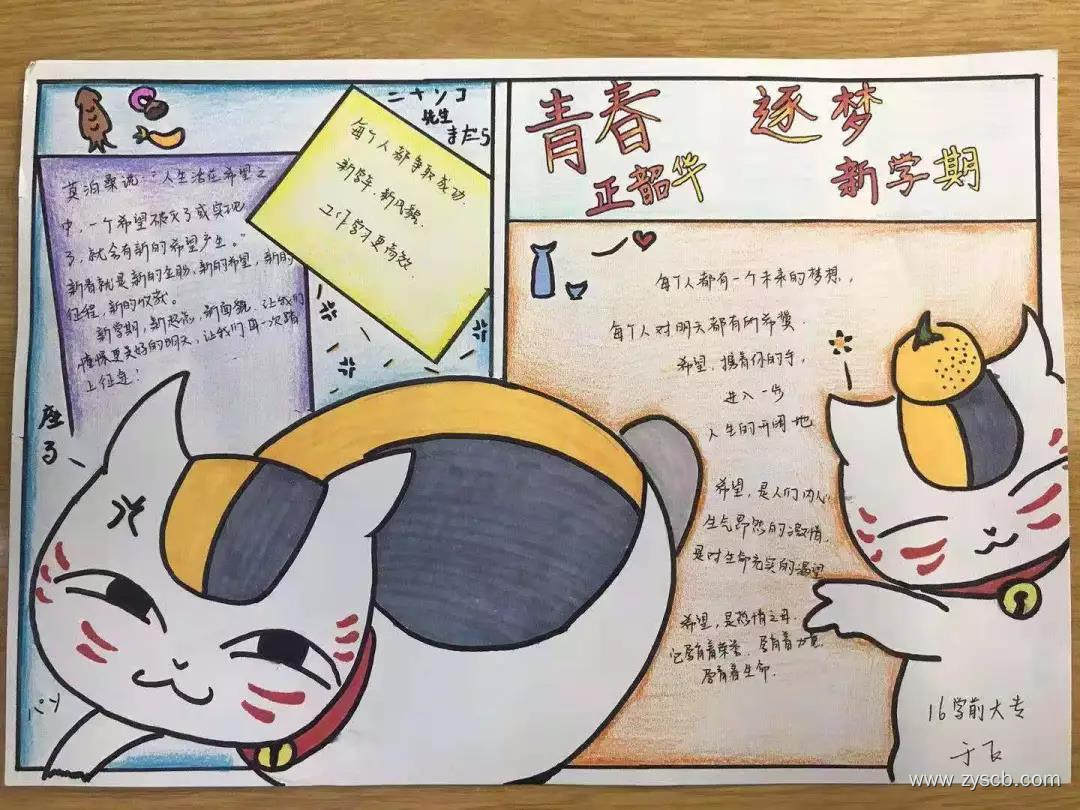 ニャンコ
先生
まだら
莫泊桑说:"人生活在希望之
中,一个希望破灭了或实现
了,就会有新的希望产生。"
新春就是新的生物,新的希望,新的
征程,新的收获。
新学期,新起点,新面貌,让我们
憧憬更美好的明天,让我们再一次踏
上征途!
每个人都争取成功,
新学年,新风貌,
工作学习更高效.
青春 逐梦
正韶华 新学期
每个人都有一个未来的梦想,
每个人对明天都有所希冀.
希望,携着你的手,
进入一步
人生的开阔地
希望,是人们内心
生气昂然的激情,
是对生命充实的渴望
希望,是热情之母.
它孕育着荣誉、孕育着力量,
孕育着生命.
16学前大专
www.zyscb.com